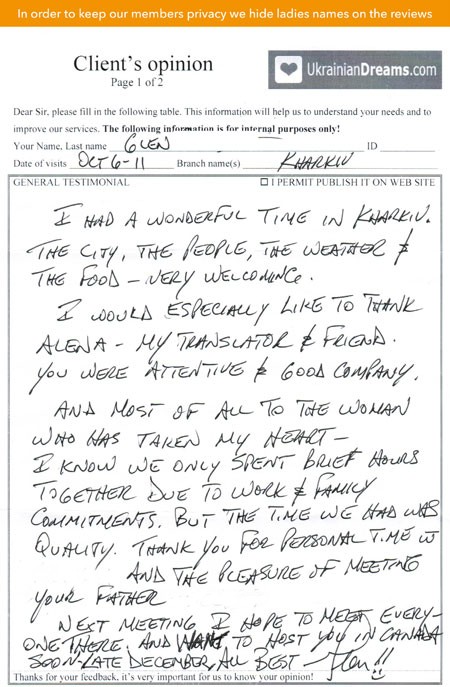 In order to keep our members privacy we hide ladies names on the reviews
Client's opinion
Page 1 of 2
UkrainianDreams.com
Dear Sir, please fill in the following table. This information will help us to understand your needs and to
improve our services. The following information is for internal purposes only!
Your Name, Last name GLEN ID
Date of visits OCT 6-11 Branch name(s) KHARKIV
GENERAL TESTIMONIAL ☐ I PERMIT PUBLISH IT ON WEB SITE
I HAD A WONDERFUL TIME IN KHARKIV.
THE CITY, THE PEOPLE, THE WEATHER &
THE FOOD - VERY WELCOMING.
I WOULD ESPECIALLY LIKE TO THANK
ALENA - MY TRANSLATOR & FRIEND.
YOU WERE ATTENTIVE & GOOD COMPANY.
AND MOST OF ALL TO THE WOMAN
WHO HAS TAKEN MY HEART -
I KNOW WE ONLY SPENT BRIEF HOURS
TOGETHER DUE TO WORK & FAMILY
COMMITMENTS. BUT THE TIME WE HAD WAS
QUALITY. THANK YOU FOR PERSONAL TIME
AND THE PLEASURE OF MEETING
YOUR FATHER
NEXT MEETING I HOPE TO MEET EVERY-
ONE THERE. AND WANT TO HOST YOU IN CANADA
SOON - LATE DECEMBER, ALL BEST - Glen!!
Thanks for your feedback, it's very important for us to know your opinion!